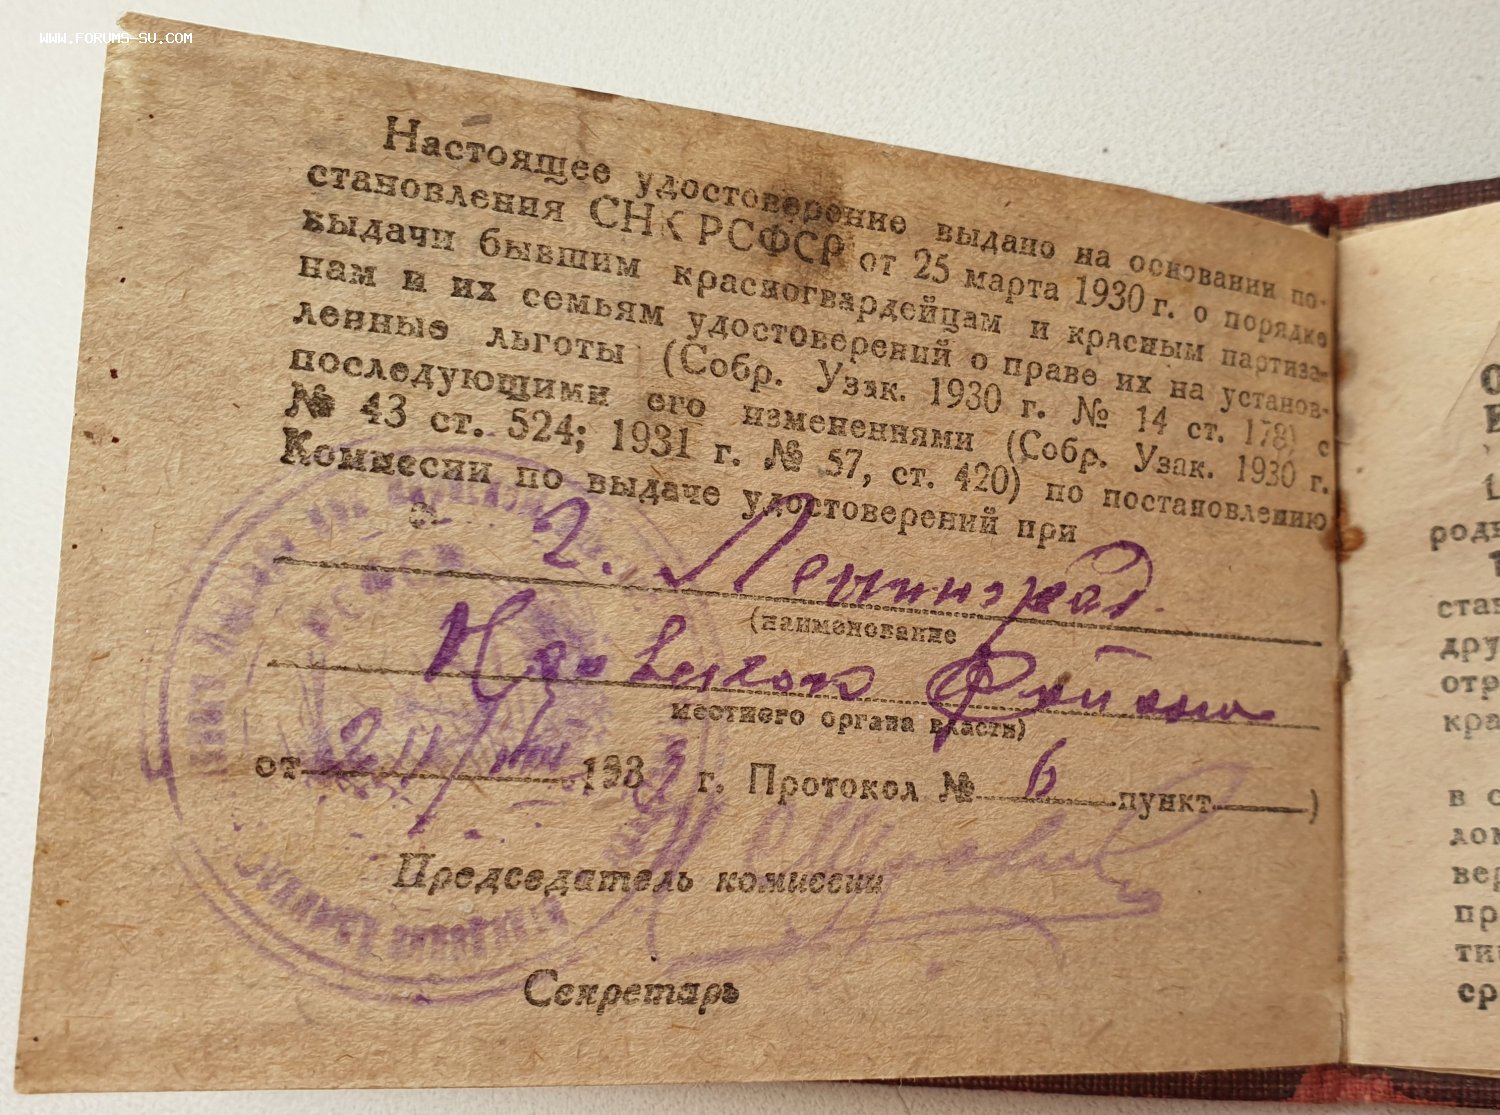 WWW.FORUMS-SU.COM
Настоящее удостоверение выдано на основании по-
становления СНК РСФСР от 25 марта 1930 г. о порядке
выдачи бывшим красногвардейцам и красным партиза-
нам и их семьям удостоверений о праве их на установ-
ленные льготы (Собр. Узак. 1930 г. № 14 ст. 178) с
последующими его изменениями (Собр. Узак. 1930 г.
№ 43 ст. 524; 1931 г. № 57, ст. 420) по постановлению
Комиссии по выдаче удостоверений при
г. Ленинград
(наименование
район
местного органа власти)
от 193 г. Протокол № 6 пункт )
Председатель комиссии
Секретарь
РСФСР